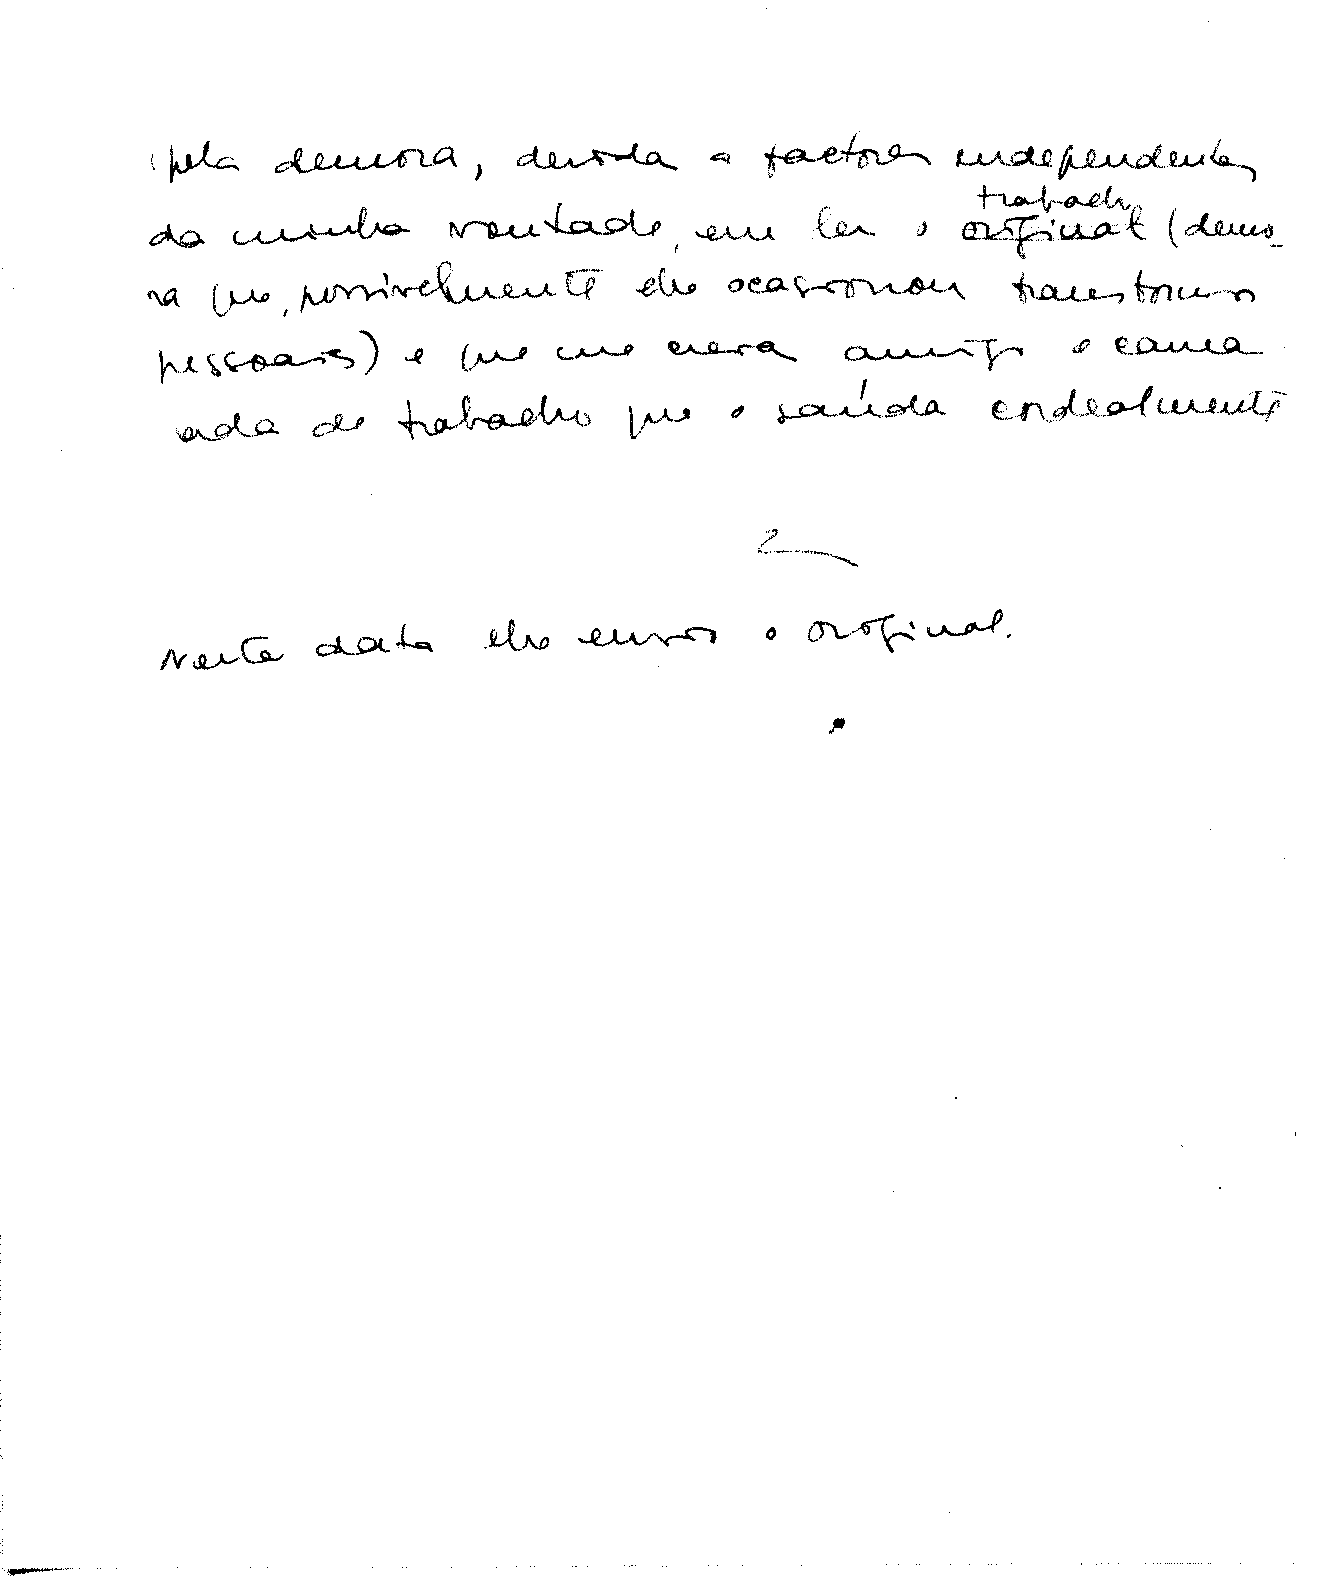 pela demora, devida a factores independentes
da minha vontade, em ler o trabalho original (demo-
ra que, possivelmente lhe ocasionou transtornos
pessoais) e que me creia amigo e cama
rada de trabalho que o saúda cordealmente
Nesta data lhe envio o original.